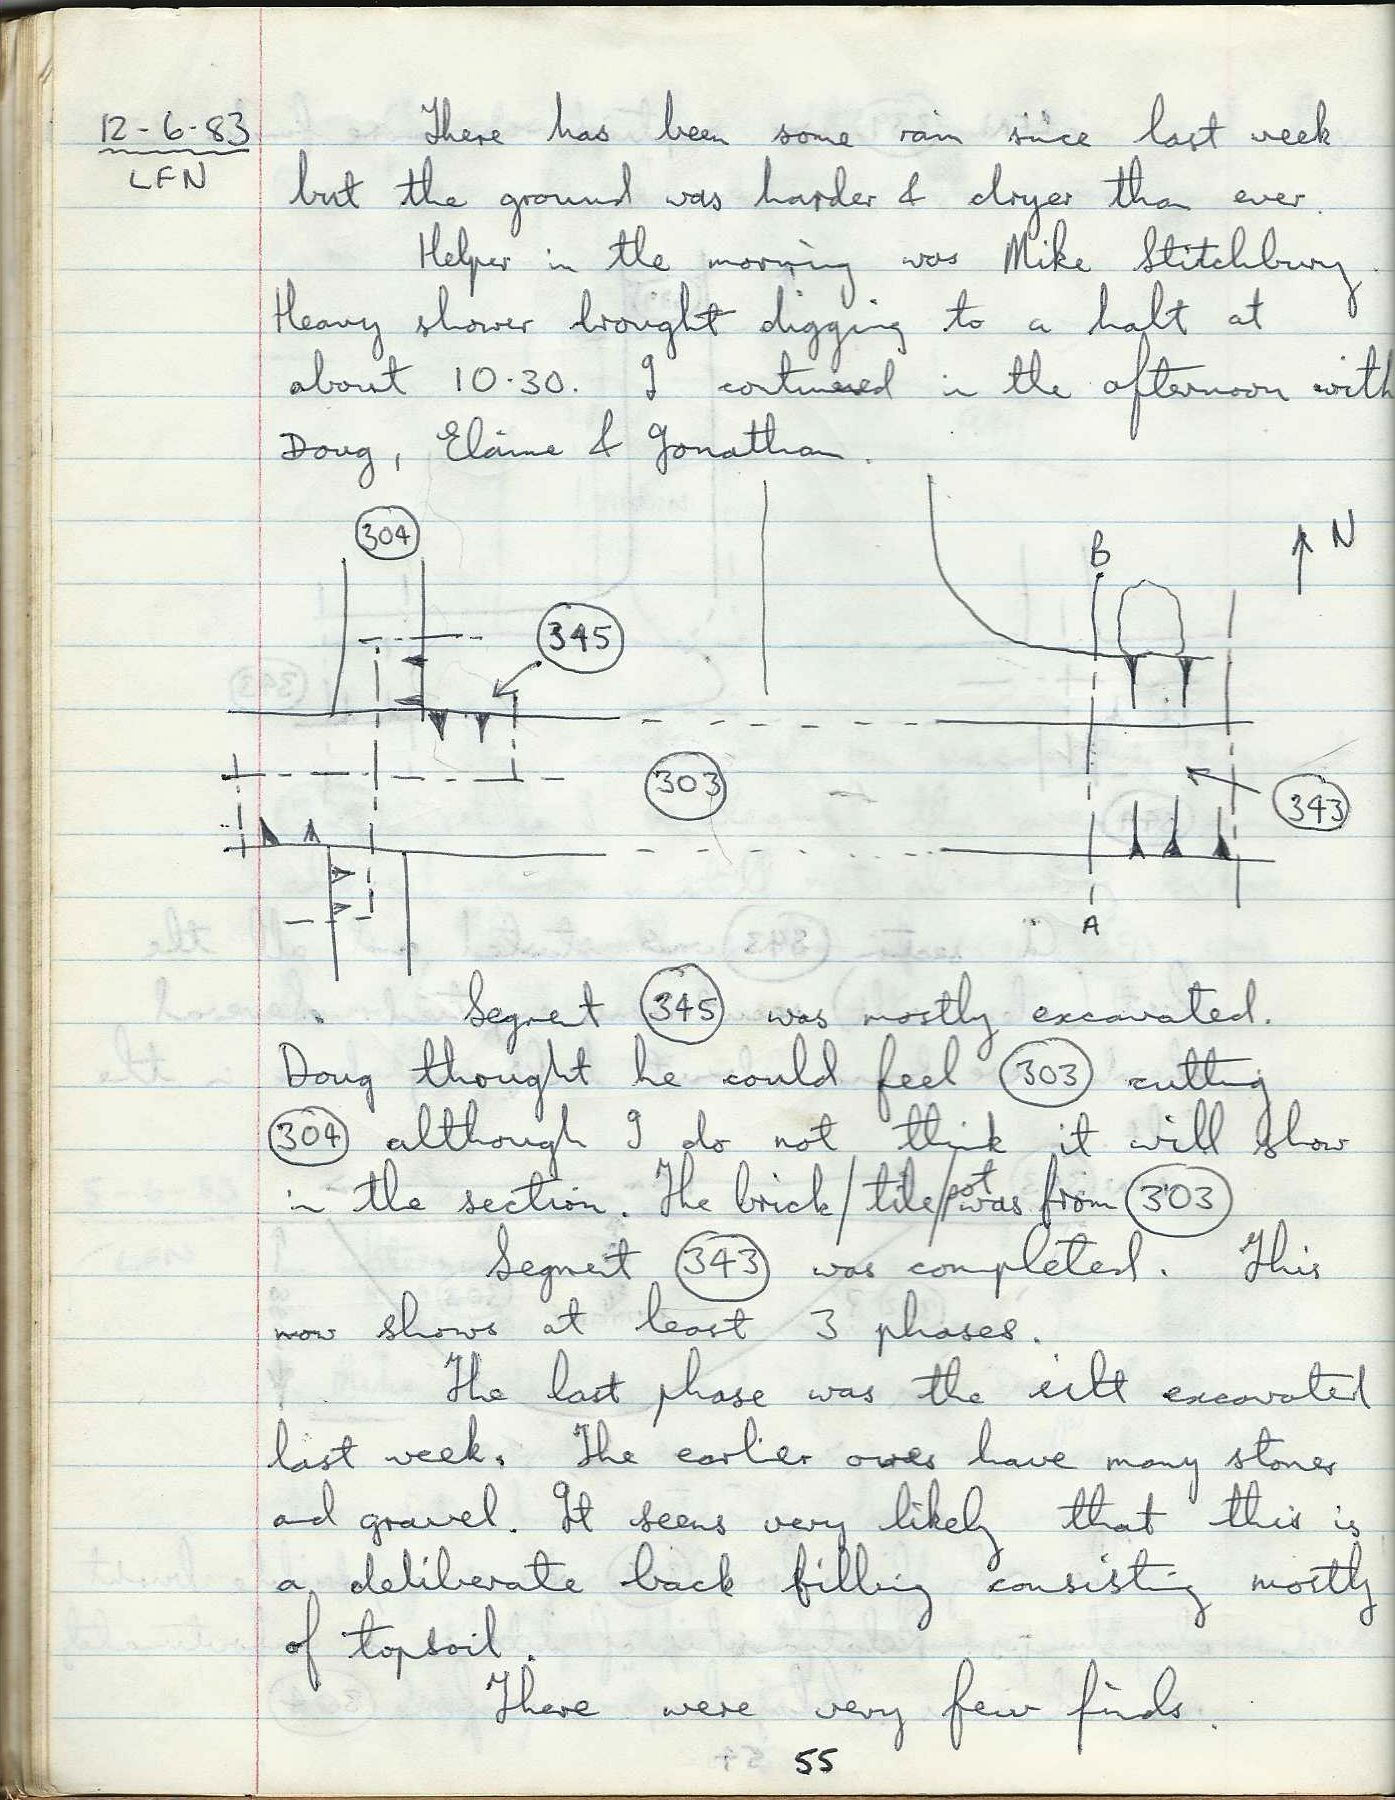 12-6-83
LFN
There has been some rain since last week
but the ground was harder & dryer than ever.
Helper in the morning was Mike Stitchbury.
Heavy shower brought digging to a halt at
about 10.30. I continued in the afternoon with
Doug, Elaine & Jonathan.
304
B
N
345
303
343
A
Segment 345 was mostly excavated.
Doug thought he could feel 303 cutting
304 although I do not think it will show
in the section. The brick/tile/pot was from 303
Segment 343 was completed. This
now shows at least 3 phases.
The last phase was the silt excavated
last week. The earlier ones have many stones
and gravel. It seems very likely that this is
a deliberate back filling consisting mostly
of topsoil.
There were very few finds.
55